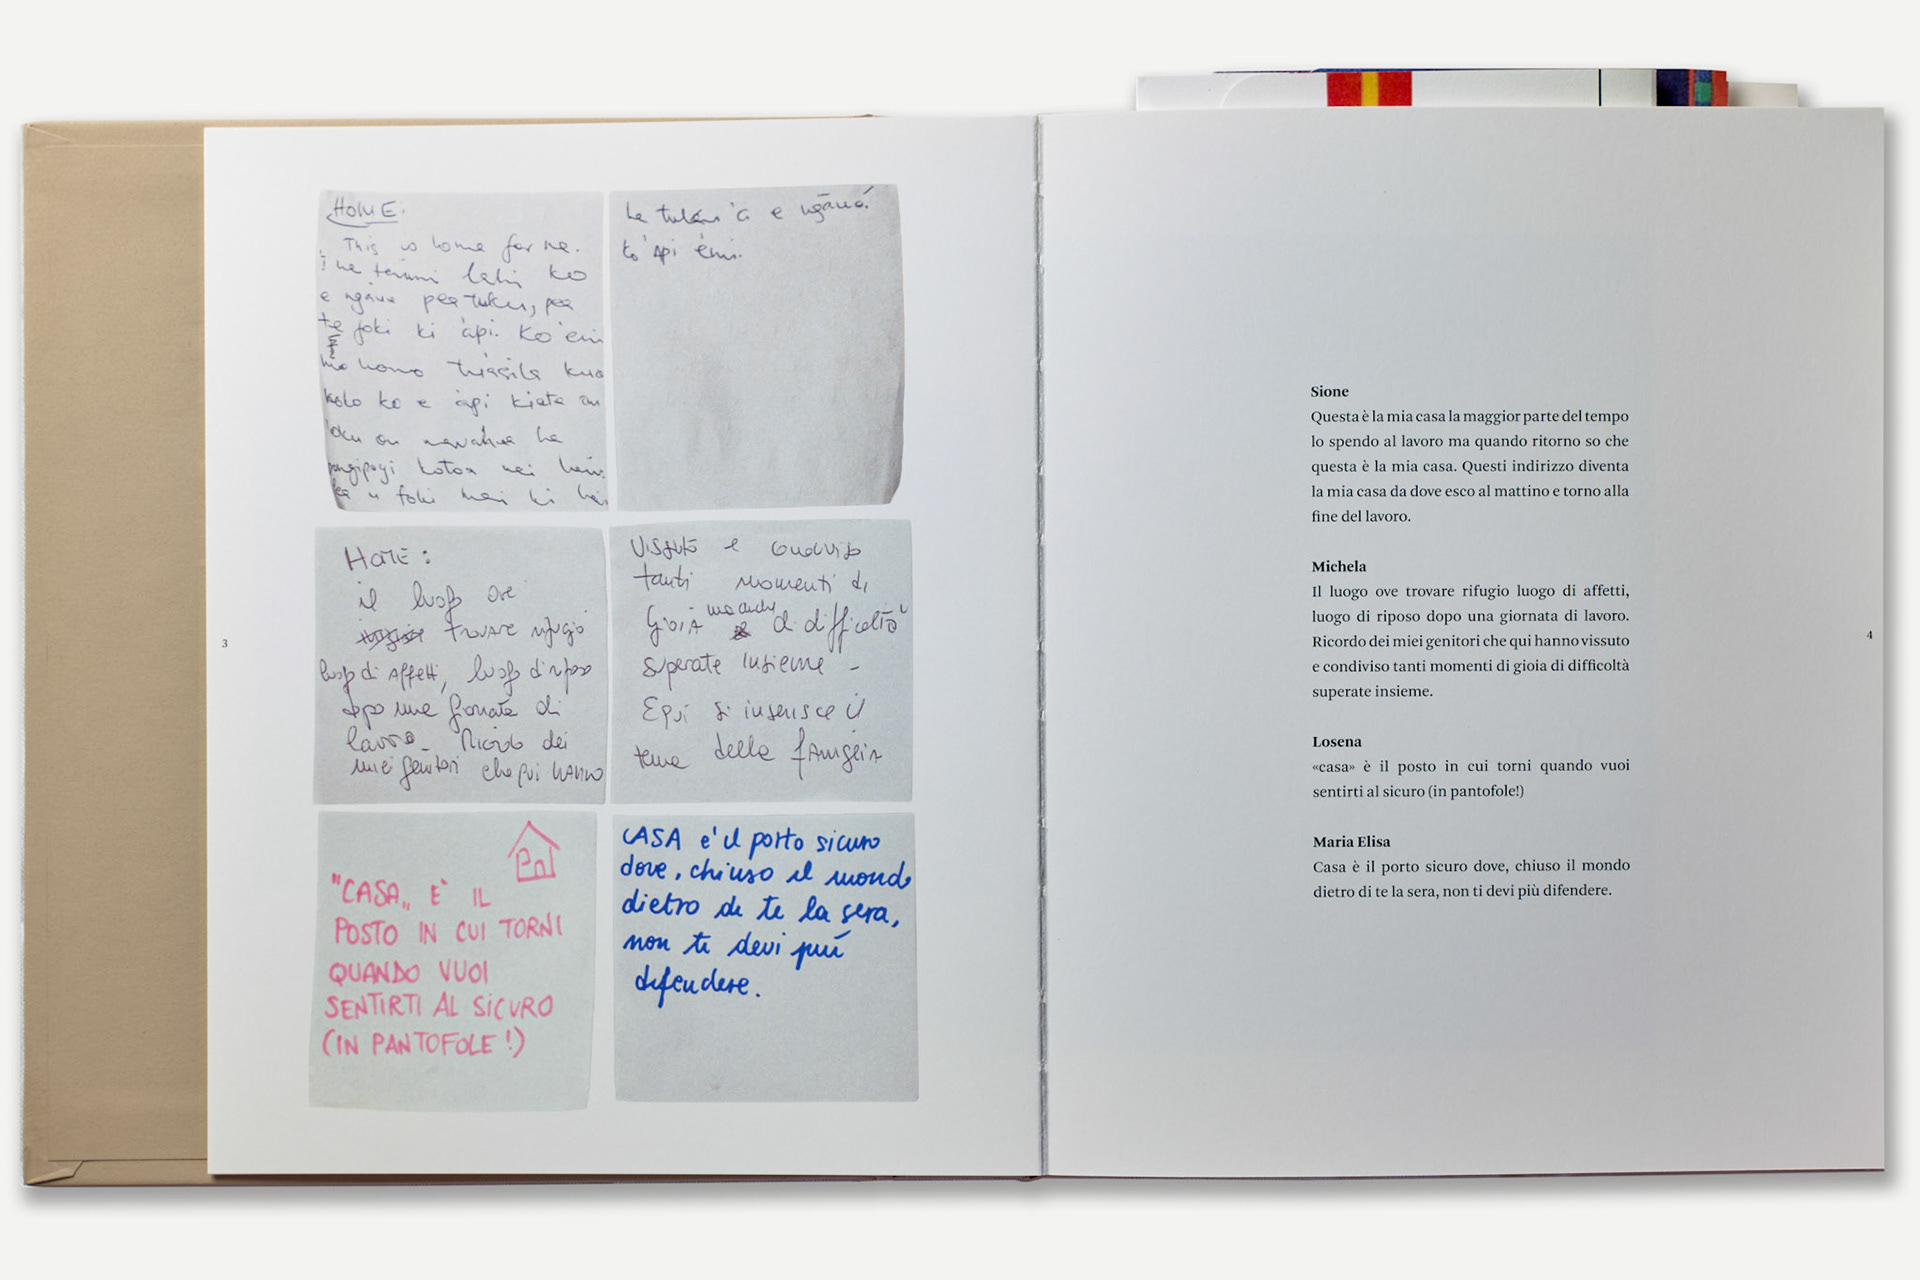 HOME:
This is home for me.
ko
pea tuku, pea
foki ki 'api. Ko 'eni
kolo ko e 'api
foki mai ki
e
ko 'api 'eni.
HOME:
il luogo ove
trovare rifugio
luogo di affetti, luogo di riposo
dopo una giornata di
lavoro_ Ricordo dei
miei genitori che qui hanno
Vissuto e condiviso
tanti momenti di
gioia ma anche di difficoltà
superate insieme -
E qui si inserisce il
tema della famiglia
"CASA„ È IL
POSTO IN CUI TORNI
QUANDO VUOI
SENTIRTI AL SICURO
(IN PANTOFOLE!)
CASA e' il porto sicuro
dove, chiuso il mondo
dietro di te la sera,
non ti devi più
difendere.
3
Sione
Questa è la mia casa la maggior parte del tempo
lo spendo al lavoro ma quando ritorno so che
questa è la mia casa. Questi indirizzo diventa
la mia casa da dove esco al mattino e torno alla
fine del lavoro.
Michela
Il luogo ove trovare rifugio luogo di affetti,
luogo di riposo dopo una giornata di lavoro.
Ricordo dei miei genitori che qui hanno vissuto
e condiviso tanti momenti di gioia di difficoltà
superate insieme.
Losena
«casa» è il posto in cui torni quando vuoi
sentirti al sicuro (in pantofole!)
Maria Elisa
Casa è il porto sicuro dove, chiuso il mondo
dietro di te la sera, non ti devi più difendere.
4